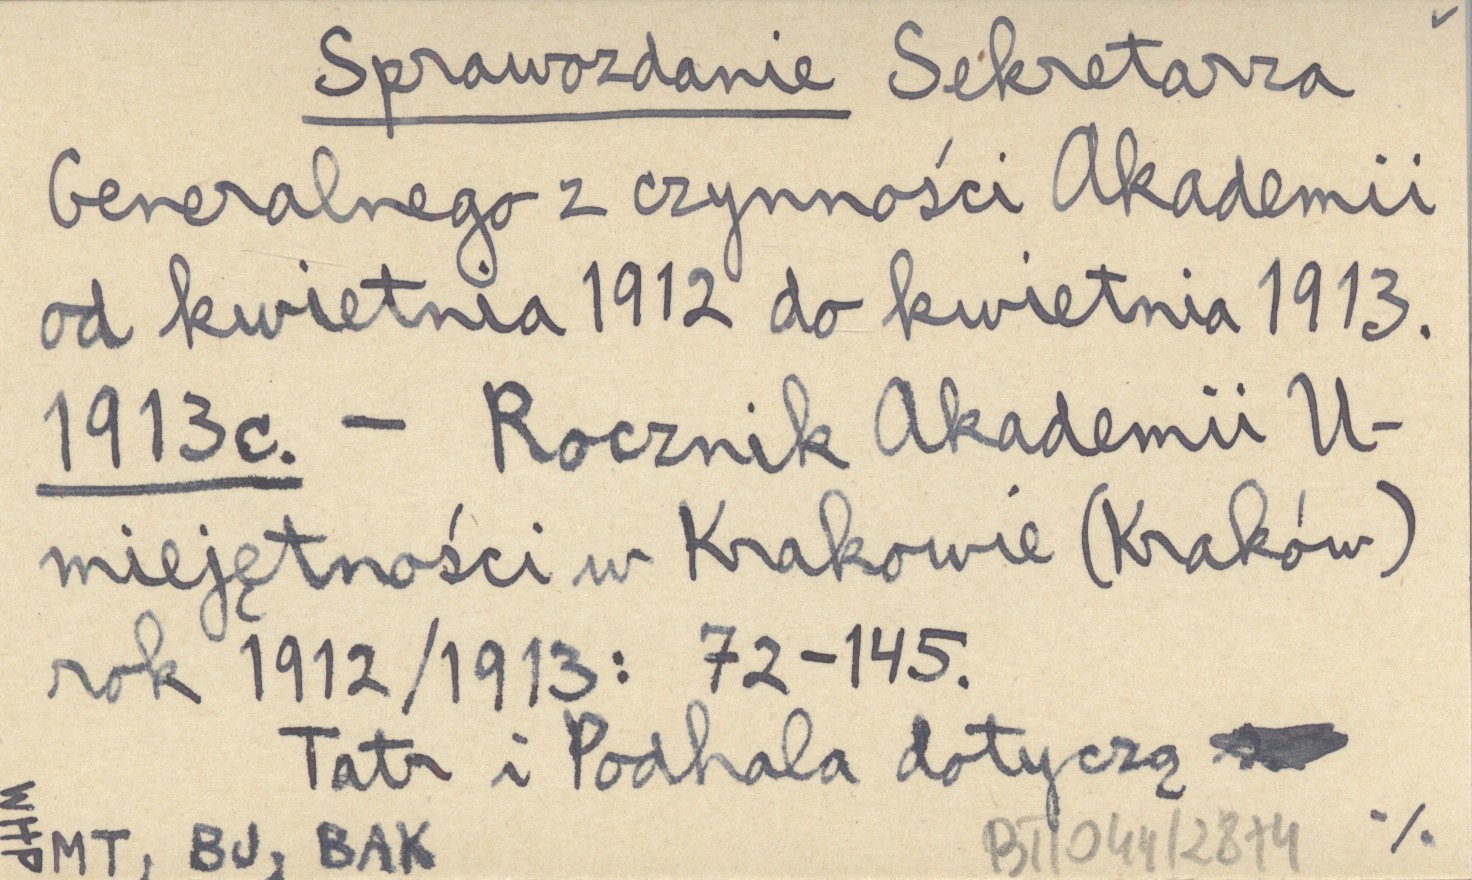 Sprawozdanie Sekretarza
Generalnego z czynności Akademii
od kwietnia 1912 do kwietnia 1913.
1913c. — Rocznik Akademii U-
miejętności w Krakowie (Kraków)
rok 1912/1913: 72-145.
Tatr i Podhala dotyczą
WHP
MT, BJ, BAK
BT/044/2874
·/.